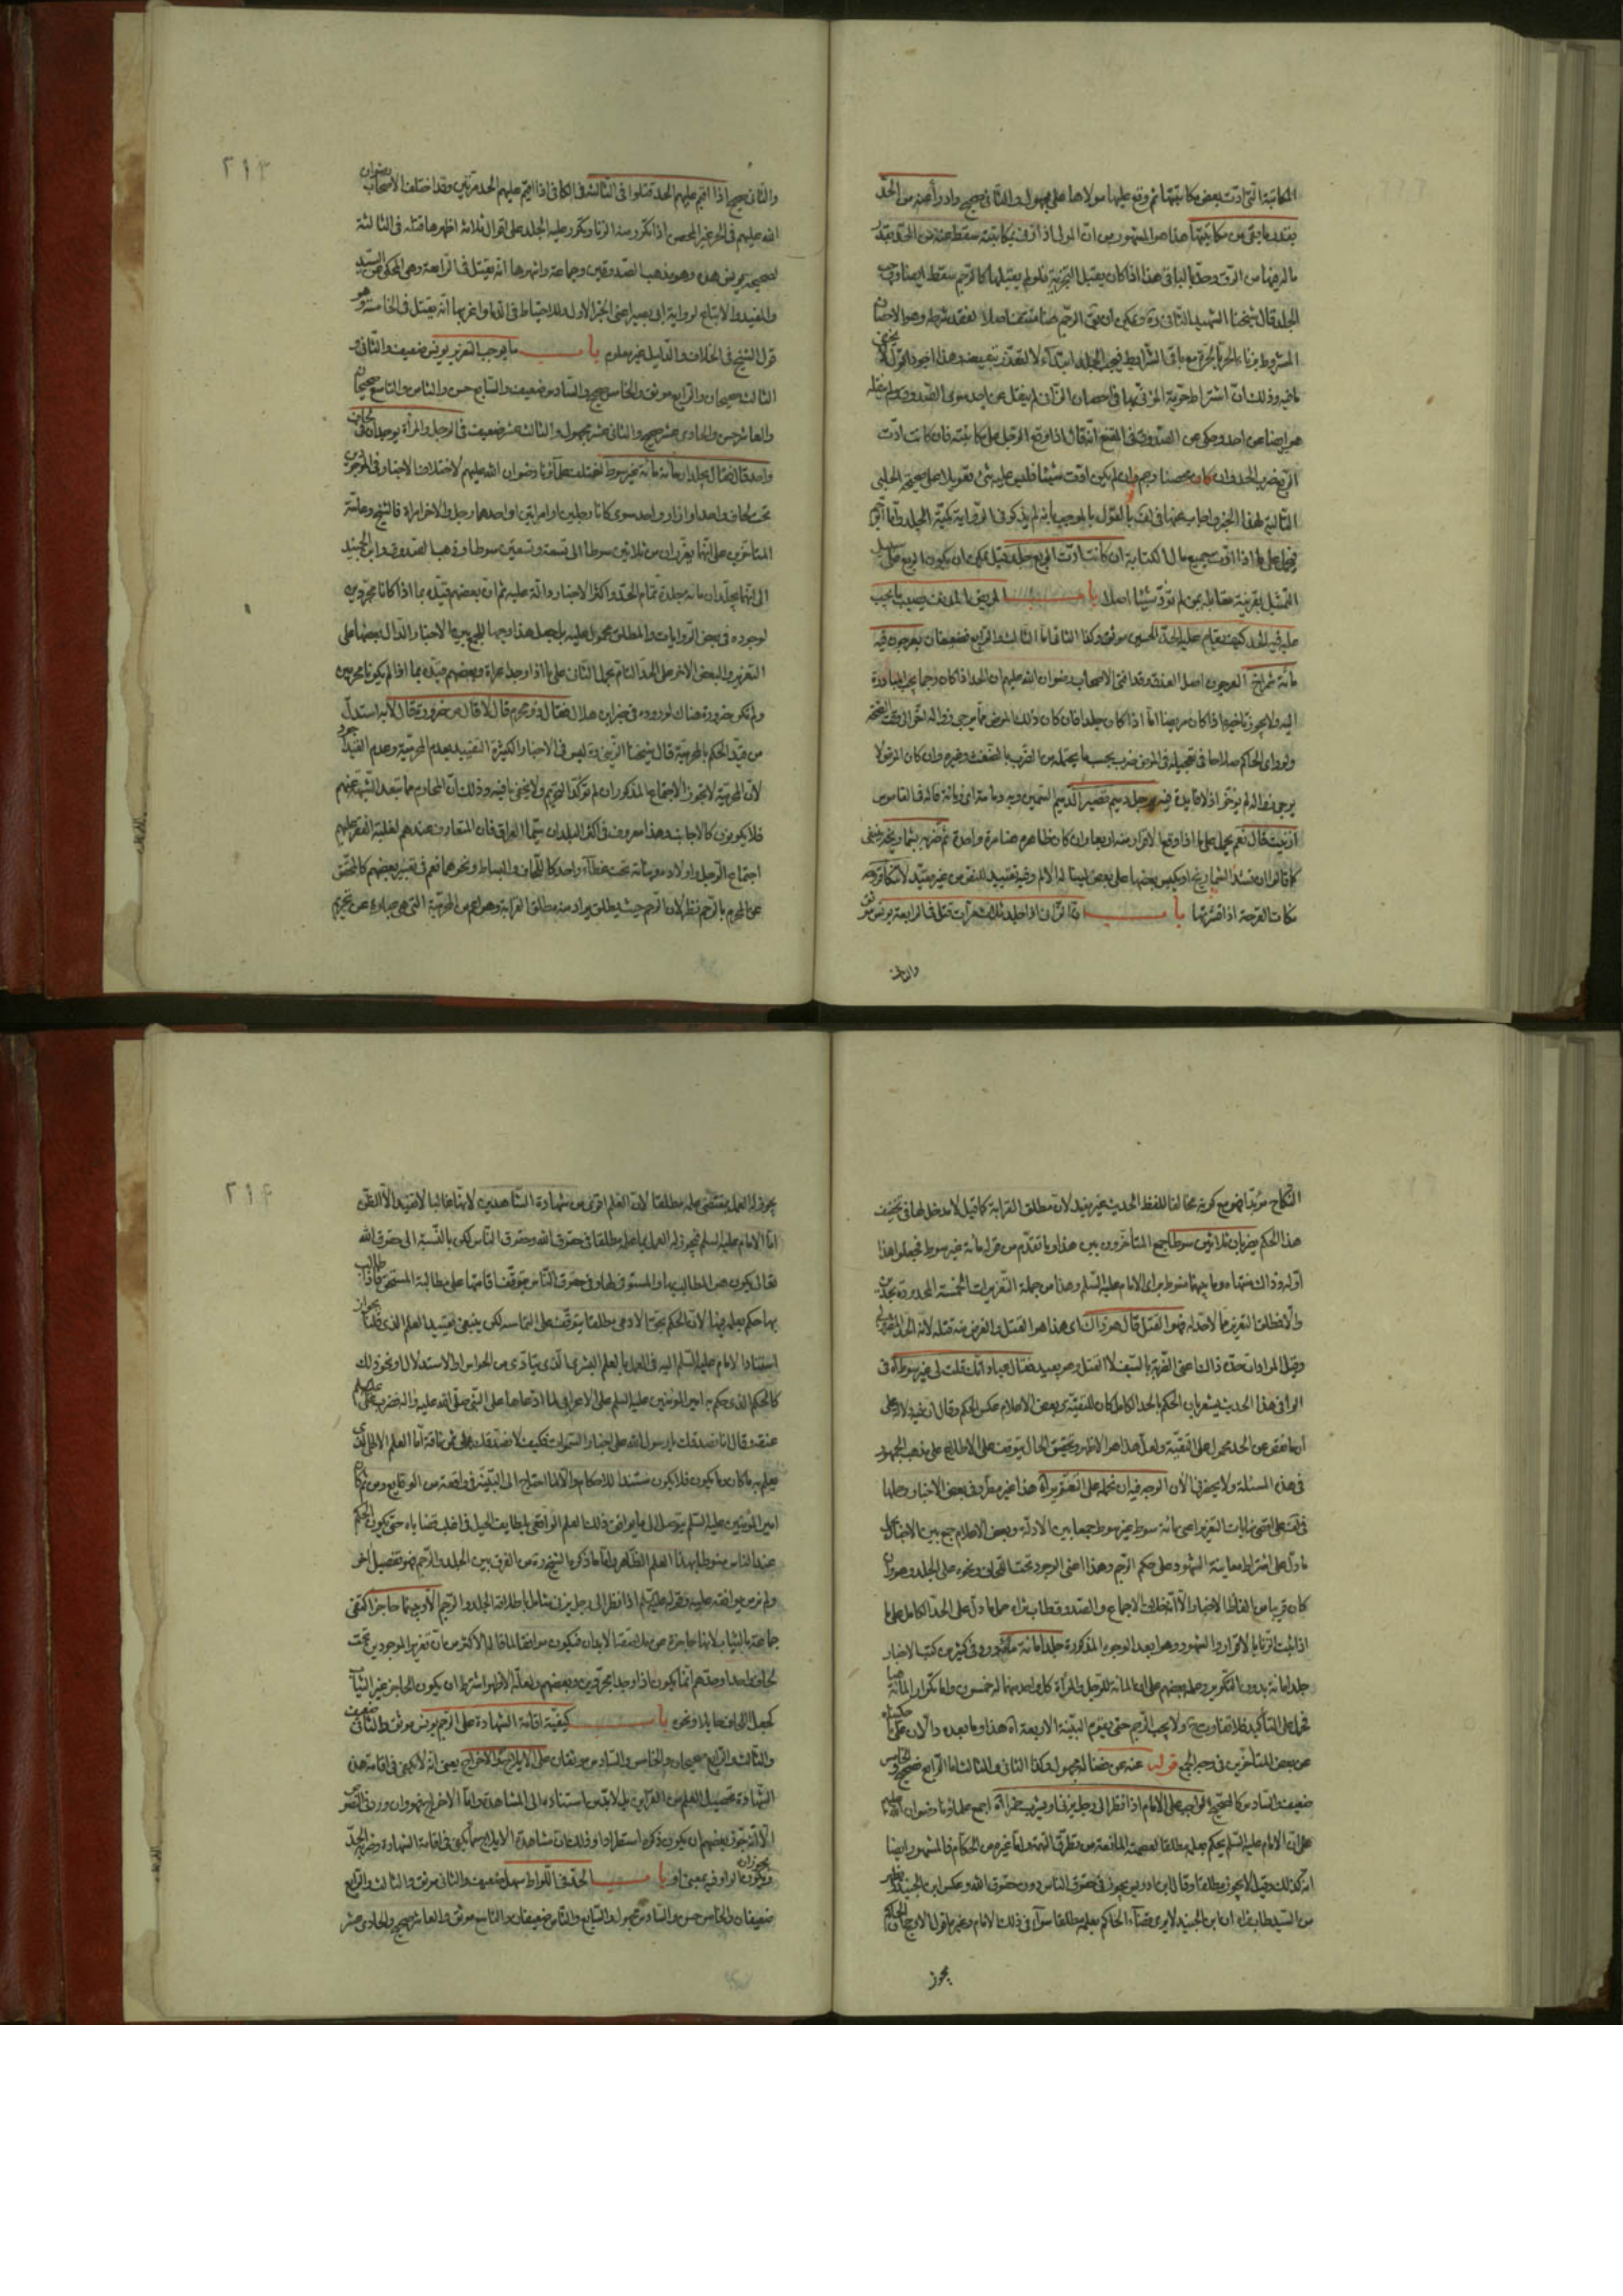 المكاتبة التي ادت بعض مكاتبتها ثم وقع عليها مولاها على مجهول والثاني صحيح وادرأ عنه من الحد
بقدر ما بقي من مكاتبتها هذا هو المشهور من ان المولى اذا زنى بمكاتبته سقط عنه من الحد بقدر
ماله فيها من الرق وحد بالباقي هذا اذا كان يقبل التجزية فلو لم يقبلها كالرجم سقط ايضا
الجلد قال شيخنا الشهيد الثاني ره ويمكن ان نفي الرجم هنا
المشروط بزناء الحر بالحرة مع باقي الشرايط فيجب الجلد ابتداء لا لتعذر تبعيضه وهذا اجود
ما فيه وذلك ان اشتراط حرية المزني بها في احصان الزاني لم ينقل عن احد سوى الصدوق
هو ايضا عن احد وحكي عن الصدوق في المقنع انه قال اذا وقع الرجل على مكاتبته فان كانت ادت
الربع ضرب الحد وان كان محصنا رجم وان لم يكن ادت شيئا فليس عليه شيء وتعويله على صحيحة الحلبي
التالية لهذا الخبر
اذا ادت جميع مال الكتابة ان كانت ادت الربع جلد قيل يمكن ان يكون الربع على
التمثيل بقرينة مقابله بمن لم تؤد شيئا اصلا باب
عليه فيه الحد كيف يقام عليه الحد الحسين موثق وكذا الثاني اما الثالث والرابع فضعيفان بعرجون فيه
مائة شمراخ العرجون اصل العذق وقد افتى الاصحاب رضوان الله عليهم ان الحد اذا كان رجما يجب المبادرة
اليه ولا يجوز تاخيره اذا كان مريضا اما اذا كان جلدا فان كان ذلك المرض مما يرجى زواله اخر الى وقت الصحة
ولو راى الحاكم صلاحا في تعجيله في المرض ضرب بحسب ما يحتمله من الضرب بالضغث وغيره وان كان المرض لا
يرجى زواله لم يؤخر اذ لا فايدة فيه رجل دميم قصير الدميم السمين وبه زمانة اي
ازنيت قال نعم يحمل على ما اذا وقع الاقرار منه اربعا وان كان ظاهره هنا مرة واحدة ثم ضربه بشماريخه
كما قالوا ان تشد الشماريخ او يكبس بعضها على بعض لينالها الالم
نكات القرحة اذا قشرتها باب ان الزاني اذا جلد ثلاث مرات قتل في الرابعة يونس موثق
والثاني
٢١٣
والثاني صحيح اذا اقيم عليهم الحد قتلوا في الثالثة في الكافي اذا اقيم عليهم الحد مرتين وقد اختلف الاصحاب رضوان
الله عليهم في الحر غير المحصن اذا تكرر منه الزنا وتكرر عليه الجلد على اقوال ثلاثة اظهرها قتله في الثالثة
لصحيحة يونس هذه وهو مذهب الصدوقين وجماعة واشهرها انه يقتل في الرابعة وهي المحكي عن السيد
والمفيد والاتباع لرواية ابي بصير اعني الخبر الاول وللاحتياط في الدماء واغربها انه يقتل في الخامسة وهو
قول الشيخ في الخلاف والدليل غير معلوم باب ما يوجب التعزير يونس ضعيف والثاني و
الثالث صحيحان والرابع موثق والخامس صحيح والسادس ضعيف والسابع حسن والثامن والتاسع صحيحان
والعاشر حسن والحادي عشر صحيح والثاني عشر مجهول والثالث عشر ضعيف في الرجل والمراة يوجدان في لحاف
واحد قال فقال يجلدان مائة مائة غير سوط اختلف علماؤنا رضوان الله عليهم لاختلاف الاخبار في الموجودين
تحت لحاف واحد او ازار واحد سوى كانا رجلين او امراتين او احدهما رجل والاخر امراة فالشيخ وعامة
المتاخرين على انهما يعزران من ثلاثين سوطا الى تسعة وتسعين سوطا وذهب الصدوق وابن الجنيد
الى انهما يجلدان مائة جلدة تمام الحد واكثر الاخبار دالة عليه ثم ان بعضهم قيده بما اذا كانا مجردين
لوجوده في بعض الروايات والمطلق محمول عليه بل جعل هذا وجها للجمع بين الاخبار الدال بعضها على
التعزير والبعض الاخر على الحد التام بحمل الثاني على ما اذا وجدا عراة وبعضهم قيده بما اذا لم يكونا محرمين
ولم تكن ضرورة هناك لوروده في خبر ابن هلال فقال ذو محرم قال لا قال من ضرورة قال لا به استدل
من قيد الحكم بالمحرمية قال شيخنا الزيني ره ليس في الاخبار الكثيرة التقييد بعدم المحرمية وعدم القيد اجود
لان المحرمية لا تجوز الاجتماع المذكور ان لم تؤكد التحريم ولا يخفى ما فيه وذلك ان المحارم مما تبعد التهمة عنهم
فلا يكونون كالاجانب وهذا معروف في اكثر البلدان سيما العراق فان المتعارف عندهم لغلبة الفقر عليهم
اجتماع الرجل واولاده وقرباته تحت غطاء واحد كاللحاف والبساط ونحوهما نعم في تعبير بعضهم كالمحقق
عن المحرم بالرحم نظر لان الرحم حيث يطلق يراد منه مطلق القرابة وهو اعم من المحرمية التي هي عبارة عن تحريم
النكاح مؤبدا فهو مع كونه مخالفا للفظ الحديث غير مفيد لان مطلق القرابة كما قيل لا مدخل لها في تخفيف
هذا الحكم يضربان ثلاثين سوطا جمع المتاخرون بين هذا وما تقدم من قوله مائة غير سوط فجعلوا هذا
اوله وذاك منتهاه وما بينهما منوط براي الامام عليه السلم وهذا من جملة التعزيرات الخمسة المحدودة
والا فمطلق التعزير مما لا حد له فهو القتل قال هو ذاك اي هذا هو القتل والغرض منه قتله
وقيل المراد ان حده ذلك اعني الضربة بالسيف لا القتل وهو بعيد فقال عباد انك قلت لي غير سوط اه في
الوافي هذا الحديث يشعر بان الحكم بالحد الكامل كان للتقية وبعض الاعلام عكس الحكم وقال ان فيه دلالة على
ان ما نقص عن الحد محمول على التقية ولعل هذا هو الاظهر وتحقيق الحال يتوقف على الاطلاع على مذهب الجمهور
في هذه المسئلة ولا يحضرني الان الوجه فيه ان نحمله على التعزير اه هذا غير مقرر في بعض الاخبار
مائة سوط غير سوط جمعا بين الادلة وبعض الاعلام جمع بين الاخبار بحمل
ما دل على اشتراط معاينة الشهود على حكم الرجم وهذا اعني الوجود تحت اللحاف ونحوه على الجلد وهو وان
كان قريبا من الفاظ الاخبار الا انه خلاف الاجماع والصدوق طاب ثراه حمل ما دل على الحد الكامل على ما
اذا ثبت الزنا بالاقرار او الشهود وهو ابعد الوجوه المذكورة جلدا مائة مائة وفي كثير من كتب الاخبار
جلدا مائة بدون التكرير وحمله بعضهم على ان المائة للرجل والمراة كل واحد منهما له خمسون واما تكرار المائة هنا
فحمل على التأكيد فلا تفاوت ولا يجب الرجم حتى يقوم البينة الاربعة اه هذا وما بعده دالان على ما حكيناه
عن بعض المتاخرين في وجه الجمع قوله عنه عن فضالة مجهول وكذا الثاني والثالث اما الرابع صحيح والخامس
ضعيف والسادس كالصحيح الواجب على الامام اذا نظر الى رجل يزني او يشرب خمرا اه اجمع علماؤنا رضوان الله عليهم
على ان الامام عليه السلم يحكم بعلمه مطلقا لعصمته المانعة من تطرق التهمة واما غيره من الحكام فالمشهور ايضا
انه كذلك وقيل لا يجوز مطلقا وقال ابن ادريس يجوز في حقوق الناس دون حقوق الله وعكس ابن الجنيد
من السيد طاب ثراه ان ابن الجنيد لا يرى قضاء الحاكم بعلمه مطلقا سواء في ذلك الامام وغيره
يجوز
٢١٤
يجوز له العمل بمقتضى علمه مطلقا لان العلم اقوى من شهادة الشاهدين لانها غالبا لا تفيد الا الظن
اما الامام عليه السلم فيجوز له العمل بما علمه مطلقا في حقوق الله وحقوق الناس لكن بالنسبة الى حقوق الله
تعالى يكون هو المطالب بها والمستوفي لها وفي حقوق الناس يتوقف اقامتها على مطالبة المستحق فاذا طالب
بها حكم بعلمه فيها لان الحكم بحق الادمي مطلقا يتوقف على التماسه لكن ينبغي تقييد العلم الذي قلنا بجواز
استناد الامام عليه السلم اليه في العمل بالعلم البشري الذي يتادى من الحواس او الاستدلال او نحو ذلك
كالحكم الذي حكم به امير المؤمنين عليه السلم على الاعرابي لما ادعاها على النبي صلى الله عليه واله فضرب علي عليه السلم
عنقه وقال انا نصدقك يا رسول الله على اخبار السموات فكيف لا نصدقك على ثمن ناقة اما العلم الالهي الذي
يعلم به ما كان وما يكون فلا يكون مستندا للاحكام والا لما احتاج الى البينة في واقعة من الوقايع ومن ثم كان
امير المؤمنين عليه السلم يتوصل الى ما يوافق ذلك العلم الواقعي بلطايف الحيل في اغلب قضاياه حتى يكون الحكم
عند الناس منوطا بهذا العلم الظاهر واما ما ذكره الشيخ ره من الفرق بين الجلد والرجم فهو تفصيل اخر
ولم نر من يوافقه عليه وقوله عليه السلم اذا نظر الى رجل يزني شامل باطلاقه الجلد والرجم الا وبينهما حاجز اكتفى
جماعة بالثياب لانها حاجزة عن ملاصقة الابدان فيكون موافقا لما قاله الاكثر من ان تعزير الموجودين تحت
لحاف واحد او حدهم انما يكون اذا وجدا مجردين وبعضهم ولعله الاظهر اشترط ان يكون الحاجز غير الثياب
كجعل اللحاف حايلا ونحوه باب كيفية اقامة الشهادة على الرجم يونس موثق والثاني ضعيف
والثالث والرابع صحيحان والخامس والسادس موثقان على الايلاج والاخراج يعني انه لا يكفي في اقامة هذه
الشهادة تحصيل العلم من القراين بل لا بد من استناده الى المشاهدة واما الاخراج فهو وان ورد في النصوص
الا انه جوز بعضهم ان يكون ذكره استطرادا وذلك ان مشاهدة الايلاج مما يكفي في اقامة الشهادة وضرب الحد
ويجوز ان يكون الواو فيه بمعنى او باب الحد في اللواط سهل ضعيف والثاني موثق والثالث والرابع
ضعيفان والخامس حسن والسادس مجهول والسابع والثامن ضعيفان والتاسع موثق والعاشر صحيح والحادي عشر